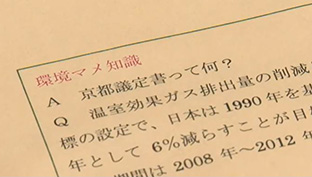 環境マメ知識
A 京都議定書って何？
Q 温室効果ガス排出量の削減
標の設定で、日本は1990年を基
年として6％減らすことが目
期間は2008年～2012年